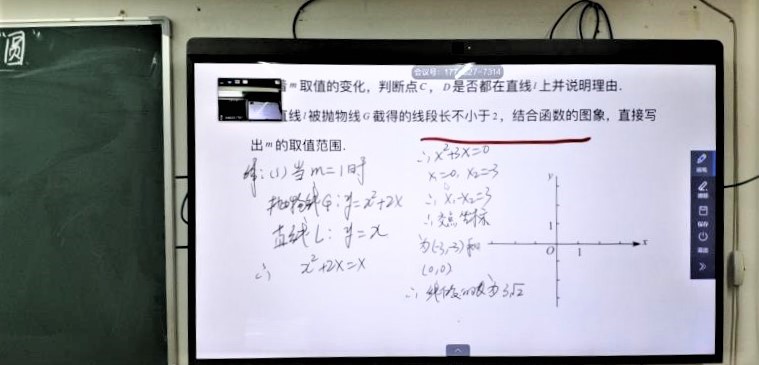 圆
会议号: 177
7314
m取值的变化，判断点C，D是否都在直线l上并说明理由.
直线l被抛物线G截得的线段长不小于2，结合函数的图象，直接写
出m的取值范围.
解：(1)当m=1时
抛物线G：y=x²+2x
直线L：y=x
∴ x²+2x=x
∴x²+3x=0
x=0, x₂=-3
∴x₁-x₂=3
∴交点坐标
为(-3,-3)和
(0,0)
∴线段的长为3√2
y
1
O
1
x